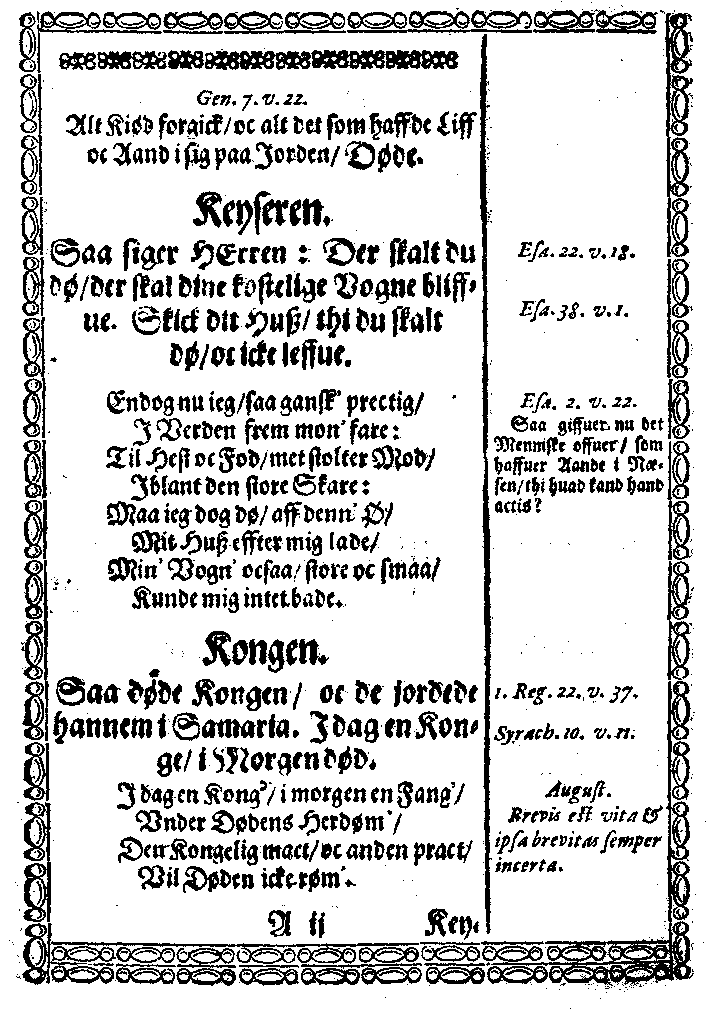 Gen. 7. v. 22.
Alt Kiød forgick/ oc alt det som haffde Liff
oc Aand i sig paa Jorden/ Døde.
Keyseren.
Saa siger HErren : Der skalt du
dø/ der skal dine kostelige Vogne bliff-
ue. Skick dit Huß/ thi du skalt
dø/ oc icke leffue.
Esa. 22. v. 18.
Esa. 38. v. 1.
Endog nu ieg/ saa gansk' prectig/
J Verden frem mon' fare:
Til Hest oc Fod/ met stolter Mod/
Jblant den store Skare:
Maa ieg dog dø/ aff denn' Ø/
Mit Huß effter mig lade/
Min' Vogn' ocsaa/ store oc smaa/
Kunde mig intet bade.
Esa. 2. v. 22.
Saa giffuer nu det
Menniske offuer/ som
haffuer Aande i Næ-
sen/ thi huad kand hand
actis?
Kongen.
Saa døde Kongen/ oc de jordede
hannem i Samaria. J dag en Kon-
ge/ i Morgen død.
1. Reg. 22. v. 37.
Syrach. 10. v. 11.
J dag en Kong'/ i morgen en Fang'/
Vnder Dødens Herdøm'/
Den Kongelig mact/ oc anden pract/
Vil Døden icke røm'.
August.
Brevis est vita &
ipsa brevitas semper
incerta.
A ij Key-